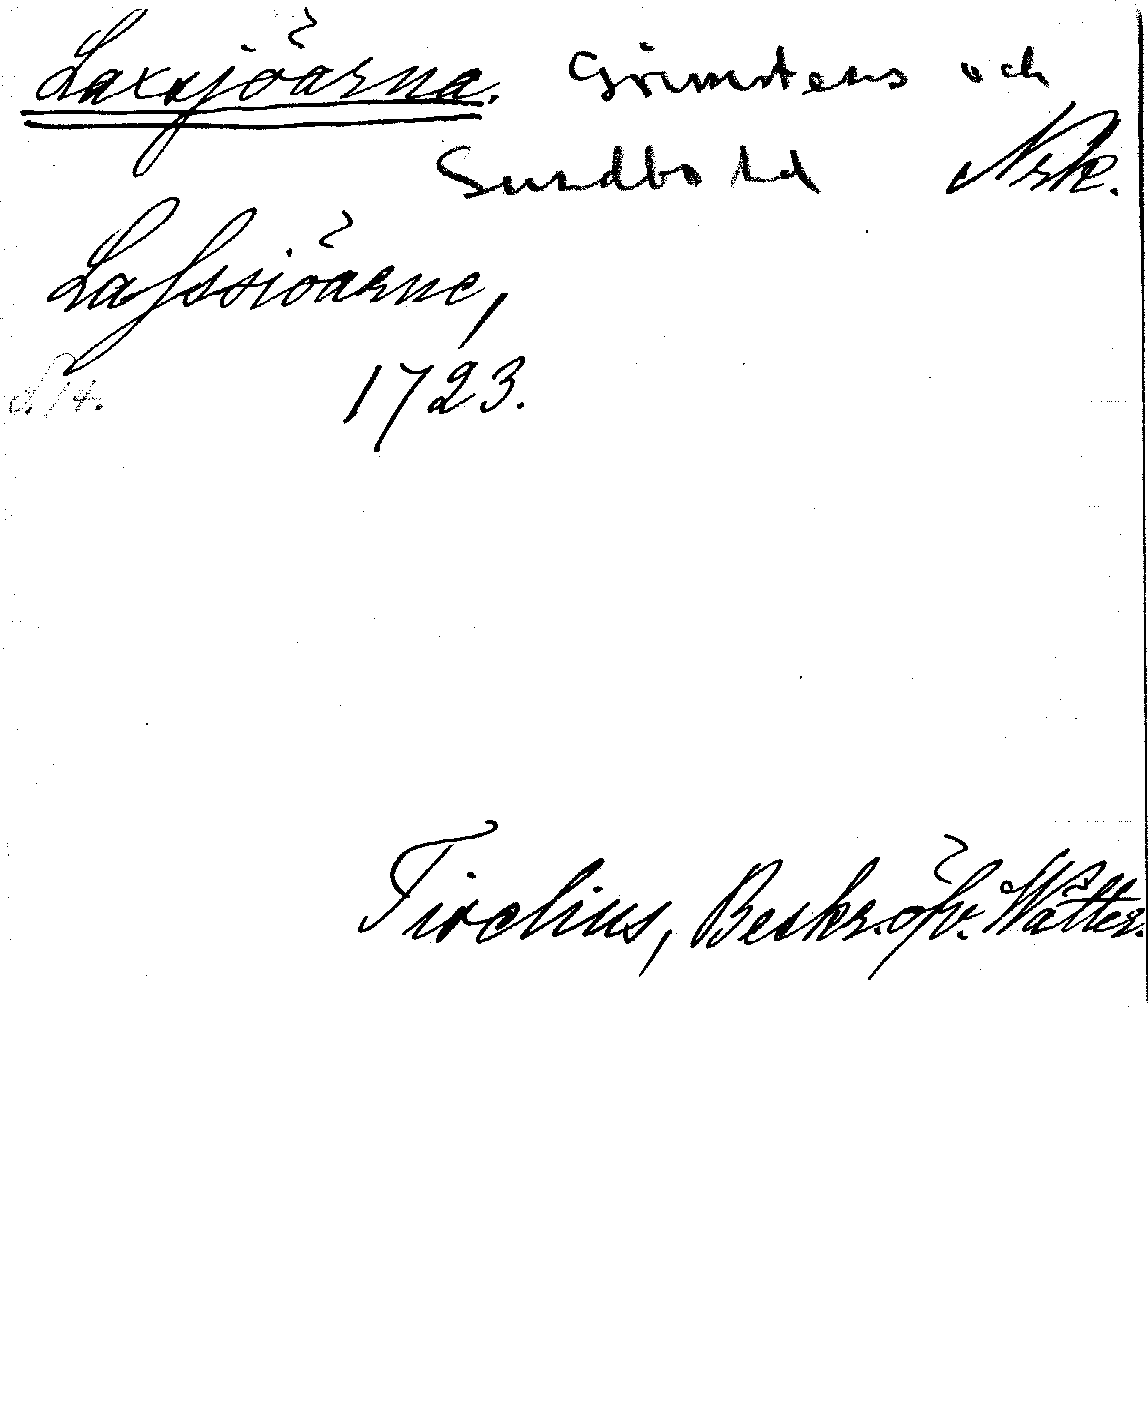 Laxsjöarna. Grimstens och
Sundbo hd Nrk.
Lasssiöarne,
1723.
Tiselius, Beskr. öfv. Wätter.